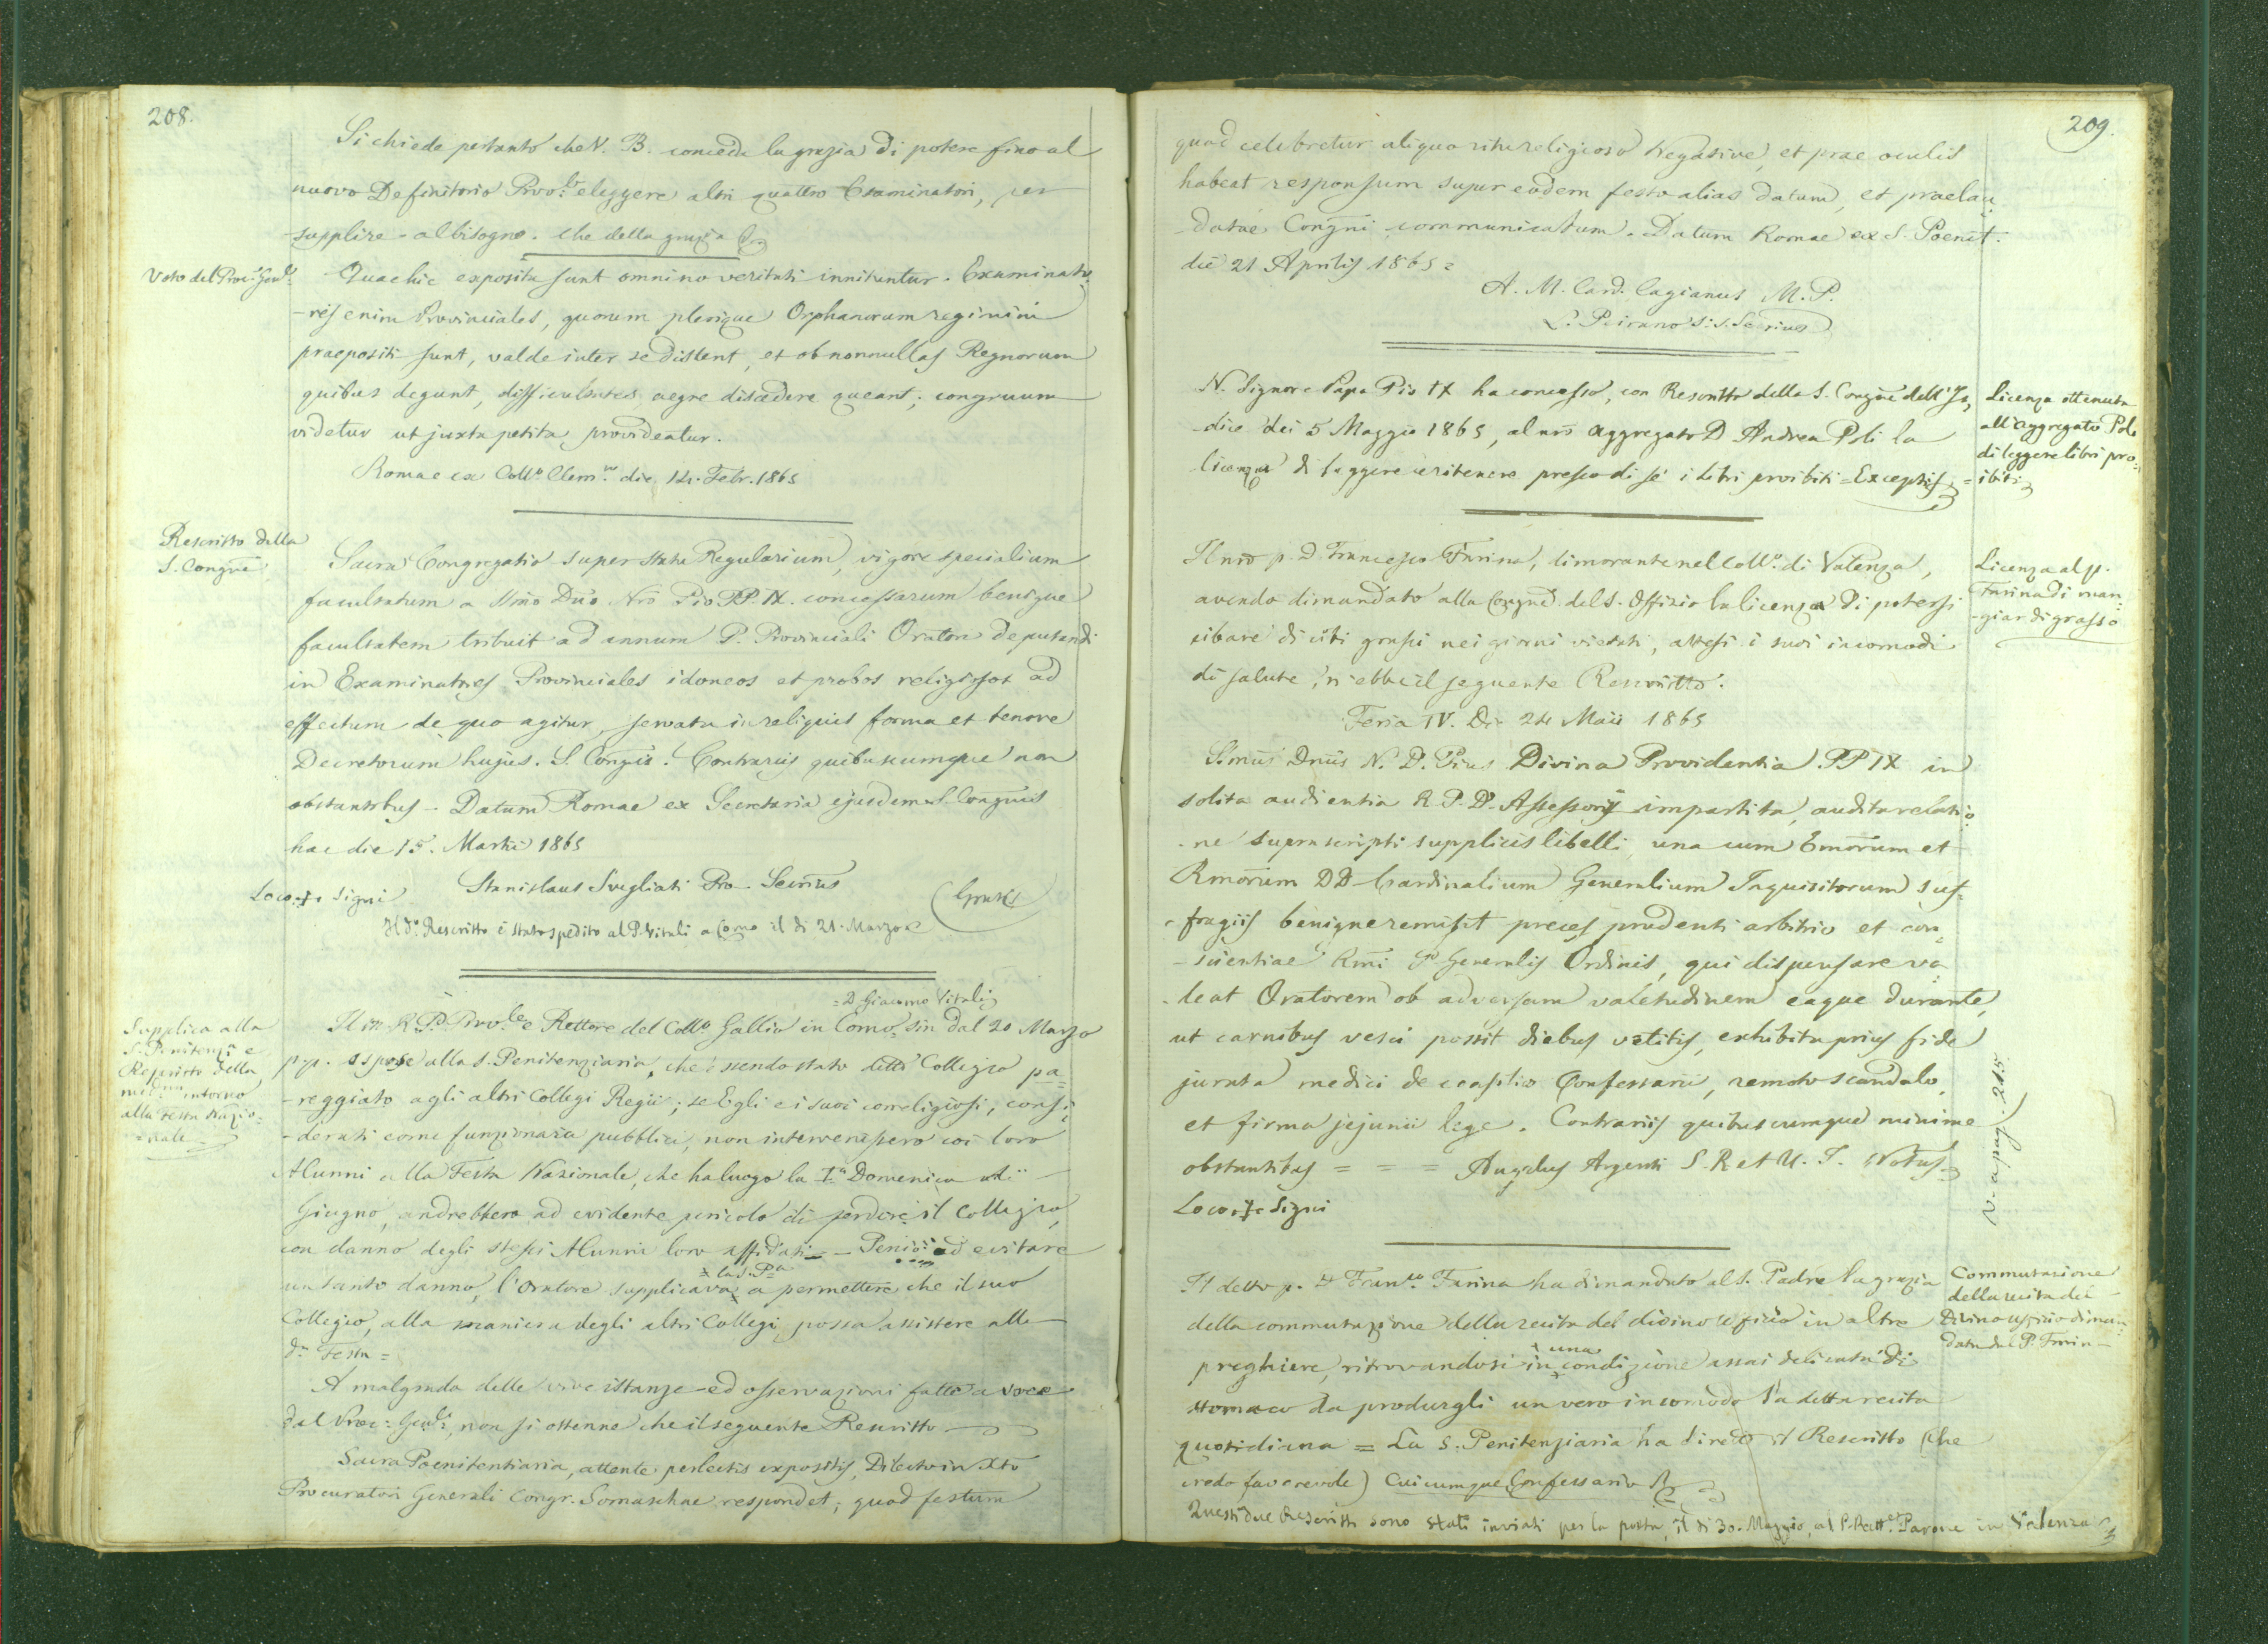 208.
Si chiede pertanto che V. B. conceda la grazia di potere fino al
nuovo Definitorio Prov.le eleggere altri quattro Esaminatori, per
supplire al bisogno. Che della grazia
Voto del Proc.r Gen.le
Quae hic exposita sunt omnino veritati innituntur. Examinato=
-res enim Provinciales, quorum plerique Orphanorum regimini
praepositi sunt, valde inter se distent, et ob nonnullas Regnorum
quibus degunt, difficultates aegre discedere queant; congruum
videtur ut juxta petita provideatur.
Romae ex Coll.o Clem.no die 14. Febr. 1865
Rescritto della
S. Congne
Sacra Congregatio super statu Regularium, vigore specialium
facultatum a SSmo Dno Nro Pio PP. IX. concessarum benigne
facultatem tribuit ad annum P. Provinciali Oratori deputandi
in Examinatores Provinciales idoneos et probos religiosos ad
effectum de quo agitur, servata in reliquis forma et tenore
Decretorum hujus. S. Congnis. Contrariis quibuscumque non
obstantibus. Datum Romae ex Secretaria ejusdem S. Congnis
hac die 15. Martii 1865
Loco + Signi
Stanislaus Svegliati Pro-Secrius
(Gratis)
Il d.o Rescritto è stato spedito al P. Vitali a Como il dì 21. Marzo
Supplica alla
S. Penitenza e
Rescritto della
med.ma intorno
alla Festa Nazio=
=nale
=D. Giacomo Vitali
Il M. R. P. Prov.le e Rettore del Coll.o Gallio in Como, sin dal 20 Marzo
p.p. espose alla S. Penitenziaria, che essendo stato detto Collegio pa=
-reggiato agli altri Collegi Regii; se Egli e i suoi correligiosi, consi=
-derati come funzionari pubblici, non intervenissero coi loro
Alunni alla Festa Nazionale, che ha luogo la I.a Domenica di
Giugno, andrebbero ad evidente pericolo di perdere il Collegio,
con danno degli stessi Alunni loro affidati - Perciò ad evitare
x la S. P.a
un tanto danno, l'Oratore supplicava x a permettere che il suo
Collegio, alla maniera degli altri Collegi possa assistere alla
d.a Festa =
A malgrado delle vive istanze ed osservazioni fatte a voce
dal Proc. Gen.le, non si ottenne che il seguente Rescritto
Sacra Poenitentiaria, attente perlectis expositis, Dilecto in Xto
Procuratori Generali Congr. Somaschae respondet; quod festum
209.
quod celebretur aliquo ritu religioso Negative, et prae oculis
habeat responsum super eodem festo alias datum, et praelau=
-datae Congni communicatum. Datum Romae ex S. Poenit.
die 21 Aprilis 1865 =
A. M. Card. Cagianus M. P.
L. Peirano S. S. Secrius
N. Signore Papa Pio IX ha concesso, con Rescritto della S. Congne dell'In=
-dice dei 5 Maggio 1865, al nro Aggregato D Andrea Poli la
licenza di leggere e ritenere presso di sé i libri proibiti = Exceptis =
Licenza ottenuta
all'Aggregato Poli
di leggere libri pro=
=ibiti
Il nro p. D. Francesco Farina, dimorante nel Coll.o di Valenza,
avendo dimandato alla Congne del S. Offizio la licenza di potersi
cibare di cibi grassi nei giorni vietati, attesi i suoi incomodi
di salute, n'ebbe il seguente Rescritto.
Licenza al p.
Farina di man=
-giar di grasso
Feria IV. Die 24 Maii 1865
SSmus Dnus N. D. Pius Divina Providentia PP IX in
solita audientia R. P. D. Assessori impartita, audita relatio=
-ne suprascripti supplicis libelli una cum Emorum et
Rmorum DD Cardinalium Generalium Inquisitorum suf=
-fragiis benigne remisit preces prudenti arbitrio et con=
-scientiae Rmi P. Generalis Ordinis, qui dispensare va=
-leat Oratorem ob adversam valetudinem eaque durante,
ut carnibus vesci possit diebus vetitis, exhibita prius fide
jurata medici de consilio Confessarii, remoto scandalo,
et firma jejunii lege. Contrariis quibuscumque minime
obstantibus = = = Angelus Argenti S. R et U. I. Notus
Loco + Signi
V. a pag. 215
Il detto p. D Fran.co Farina ha dimandato al S. Padre la grazia
della commutazione della recita del divino uficio in altre
x una
preghiere, ritrovandosi in x condizione assai delicata di
stomaco da produrgli un vero incomodo la detta recita
quotidiana = La S. Penitenziaria ha diretto il Rescritto (che
credo favorevole) Cuicumque Confessario
Commutazione
della recita del
Divino uffizio diman=
data dal P. Farina
Questi due Rescritti sono stati inviati per la posta, il dì 30. Maggio, al P. Rett.e Parone in Valenza